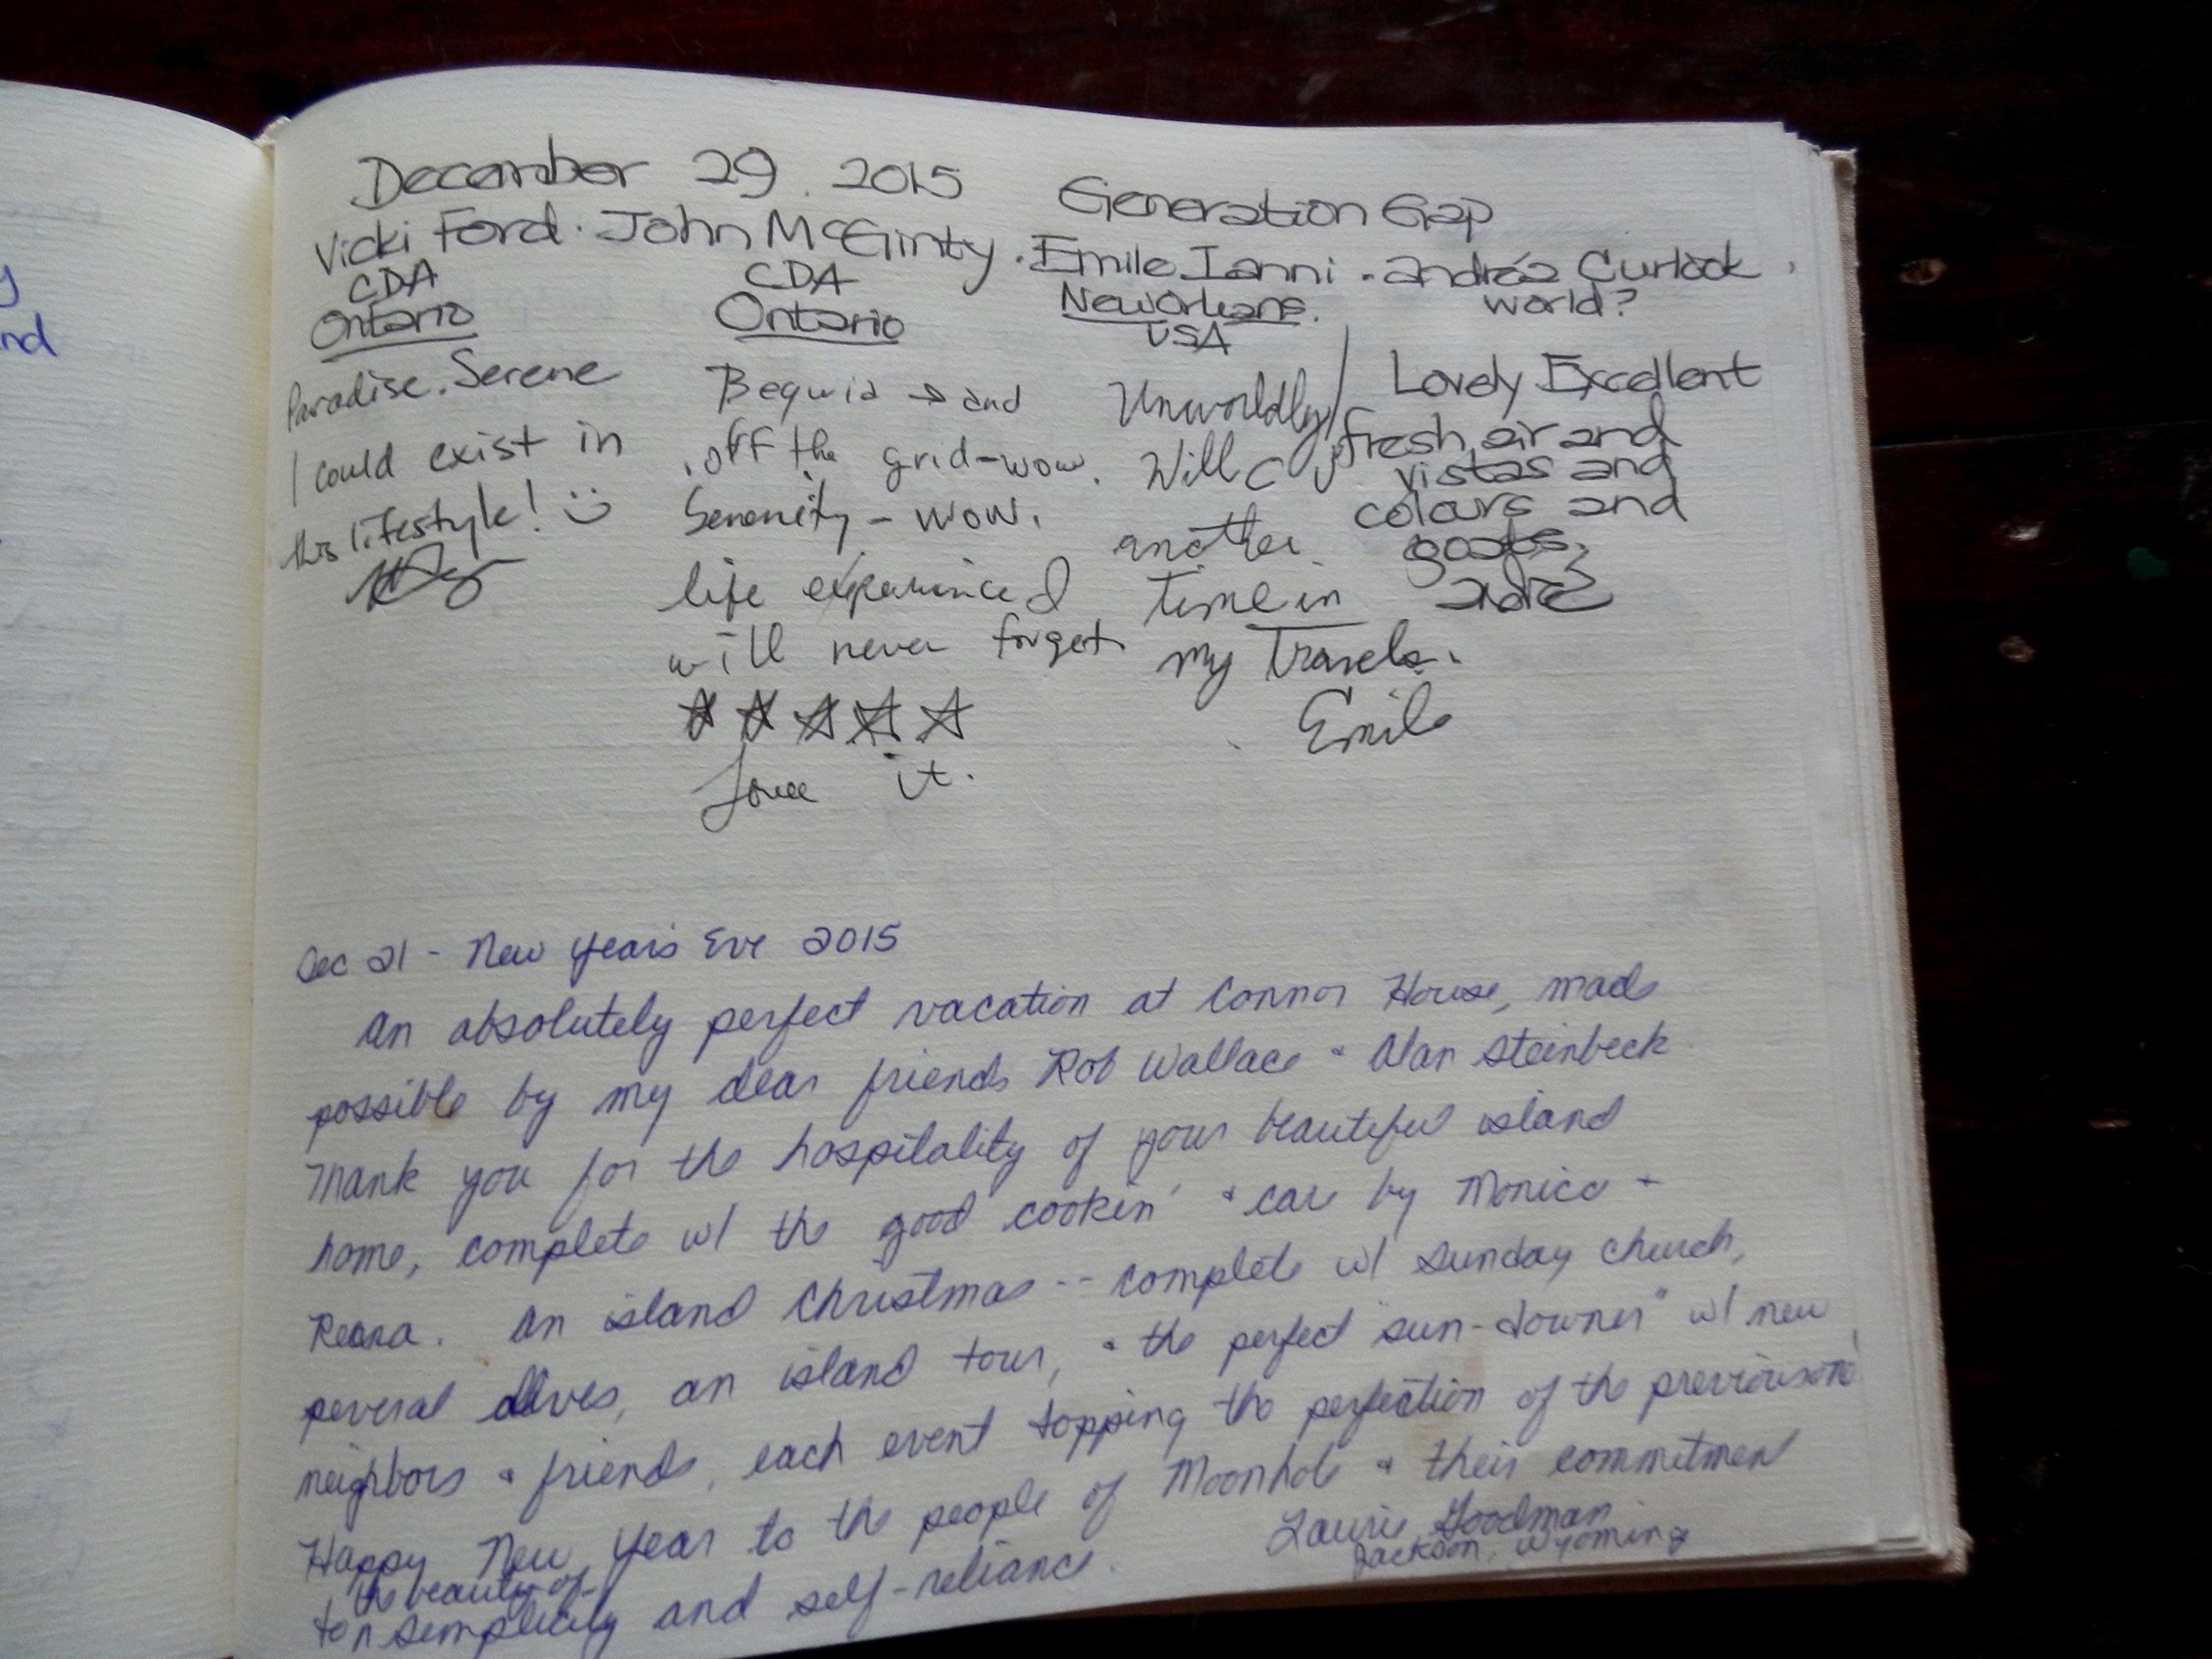 y
nd
December 29. 2015
Generation Gap
Vicki Ford. John McGinty. Emile Ianni. andréa Curlook.
CDA CDA New Orleans. World?
Ontario Ontario USA
Paradise. Serene
I could exist in
this lifestyle! :)
Bequia → and
off the grid-wow.
Serenity - wow.
life experience
will never forget
☆ ☆ ☆ ☆ ☆
Love it.
Unworldly
Will C
another
time in
my Travels.
Emile
Lovely Excellent
fresh air and
vistas and
colours and
goats.
andré
Dec 21 - New Years Eve 2015
An absolutely perfect vacation at Connor House, made
possible by my dear friends Rob Wallace & Alan Steinbeck
Thank you for the hospitality of your beautiful island
home, complete w/ the good cookin' & care by Monica +
An island Christmas -- complete w/ Sunday church,
several dives, an island tour, & the perfect "sun-downer" w/ new
neighbors & friends, each event topping the perfection of the previous one!
Happy New Year to the people of Moonhole & their commitment
the beauty of
to simplicity and self-reliance.
Laurie Goodman
Jackson, Wyoming